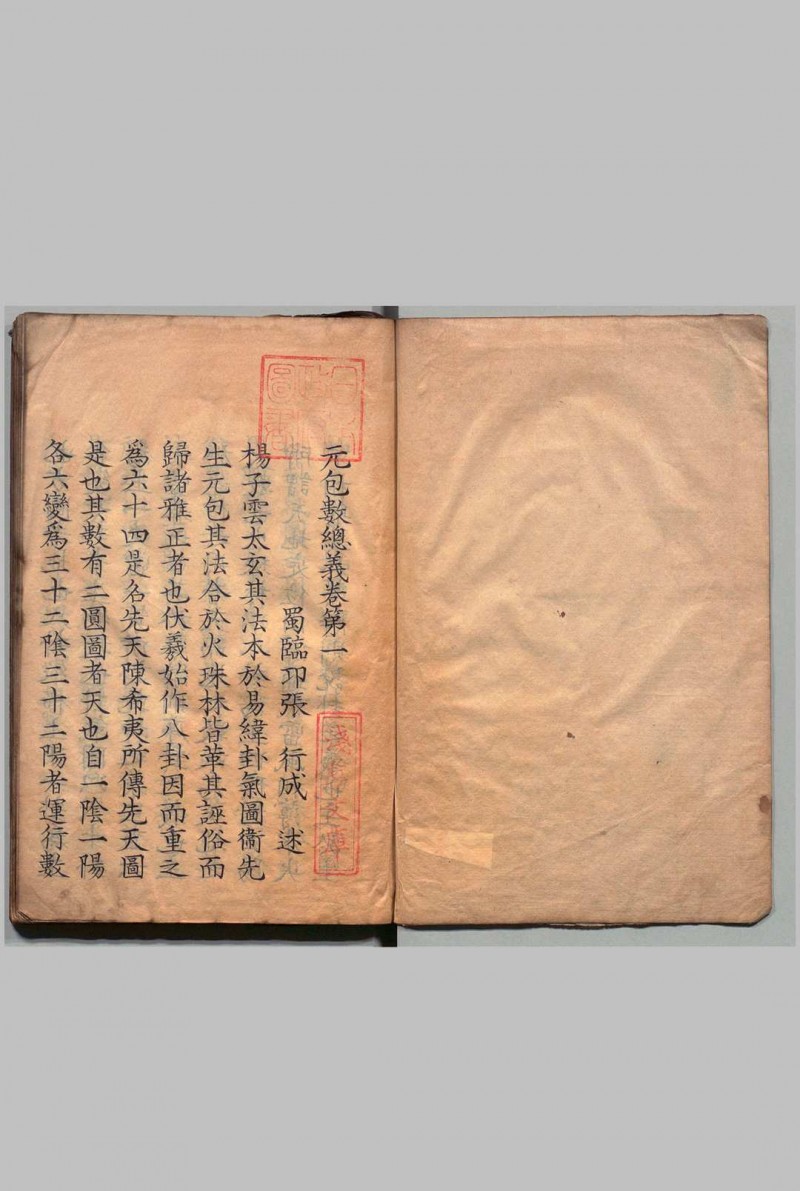 元包數總義卷第一
蜀臨卭張 行成 述
楊子雲太玄其法本於易緯卦氣圖衞先
生元包其法合於火珠林皆革其誣俗而
歸諸雅正者也伏羲始作八卦因而重之
為六十四是名先天陳希夷所傳先天圖
是也其數有二圓圖者天也自一陰一陽
各六變爲三十二陰三十二陽者運行數